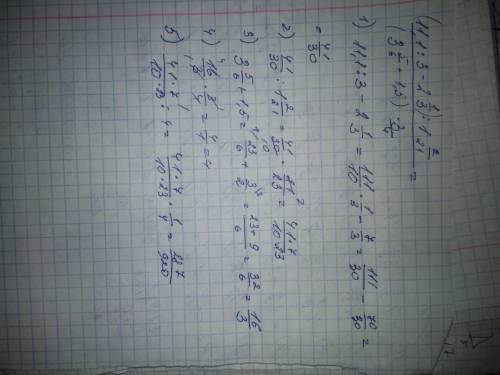 (11,1:3 - 2 1/3) : 1 2/21
(3 5/6 + 1,5) · 3/4 =
1) 11,1:3 - 2 1/3 = 111/10 · 1/3 - 7/3 = 111/30 - 70/30 =
= 41/30
2) 41/30 : 1 2/21 = 41/30 · 21/23 = 41·7/10·23
3) 3 5/6 + 1,5 = 23/6 + 3/2 = 23+9/6 = 32/6 = 16/3
4) 16/3 · 3/4 = 4/1 = 4
5) 41·7/10·23 : 4 = 41·7/10·23 · 1/4 = 287/920